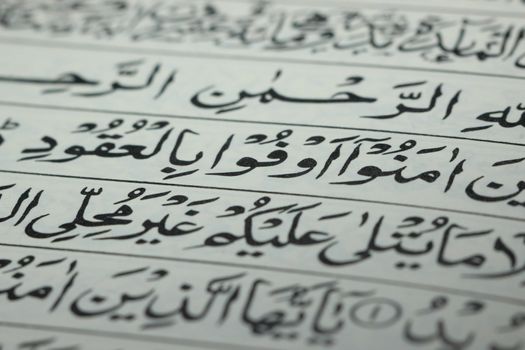 لّٰهِ الرَّحْمٰنِ الرَّحِـ
يْنَ اٰمَنُوْٓا اَوْفُوْا بِالْعُقُوْدِ
لَّا مَا يُتْلٰى عَلَيْكُمْ غَيْرَ مُحِلِّى ال
يْدُ ۝١ يٰٓاَيُّهَا الَّذِيْنَ اٰمَنُوْ